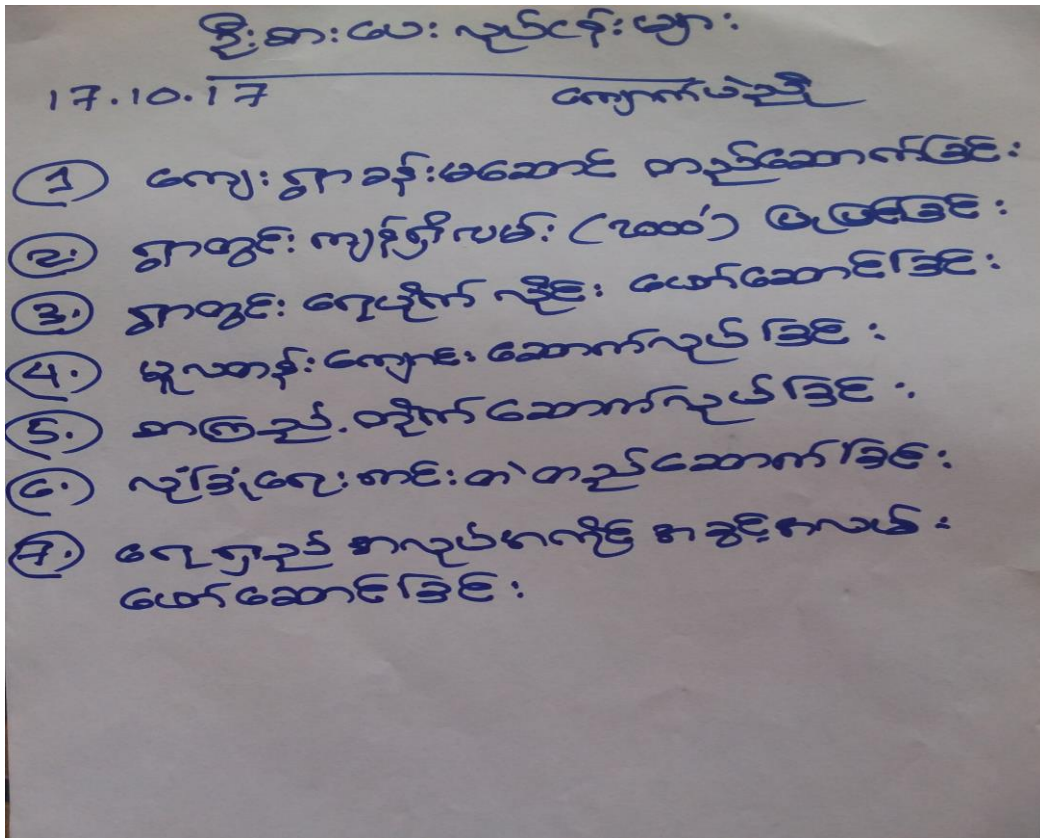 ဦးစားပေး လုပ်ငန်းများ
17.10.17 ကျောက်ပဲညို
1 ကျေးရွာခန်းမဆောင် တည်ဆောက်ခြင်း
2. ရွာတွင်း ကျန်ရှိလမ်း (၇၀၀၀') ပြုပြင်ခြင်း
3. ရွာတွင်း ရေပိုက်လိုင်း ဖော်ဆောင်ခြင်း
4. မူလတန်းကျောင်း ဆောက်လုပ်ခြင်း
5. စာကြည့်တိုက် ဆောက်လုပ်ခြင်း
6. လုံခြုံရေးကင်းတဲ တည်ဆောက်ခြင်း
7. ရေရှည် အလုပ်အကိုင် အခွင့်အလမ်း
ဖော်ဆောင်ခြင်း